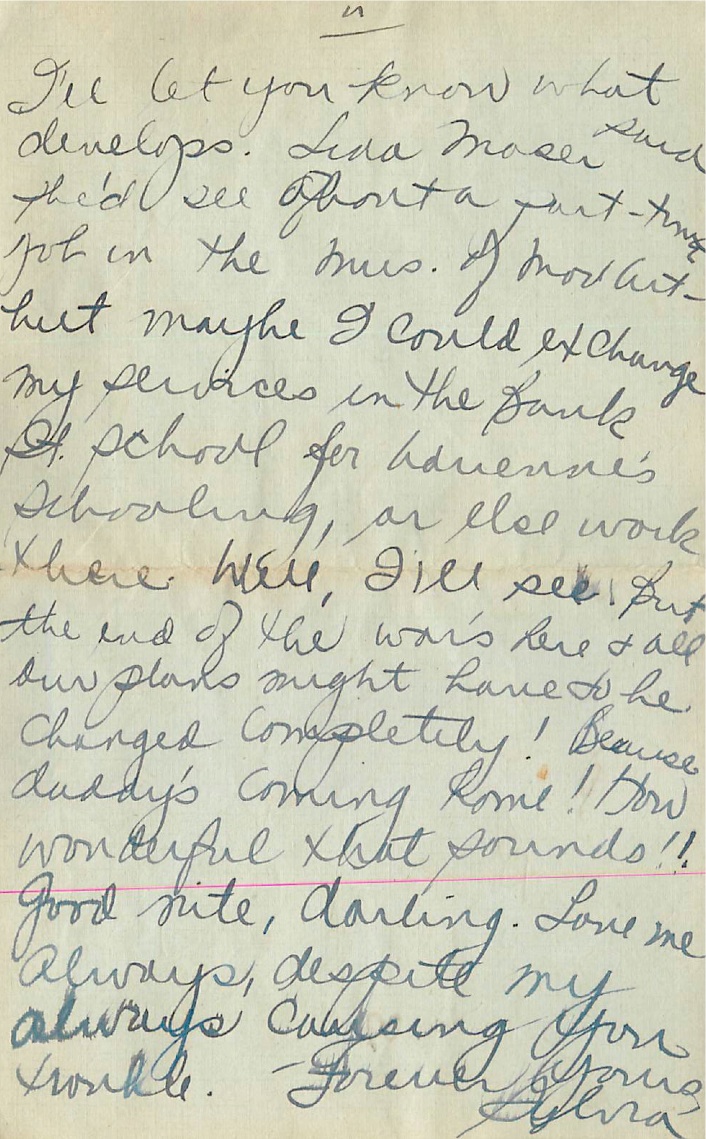 11
I'll let you know what
develops. Lida Moser said
she'd see about a part-time
job in the Mus. of Mod Art -
but maybe I could exchange
my services in the Bank
St. School for Adrienne's
schooling, or else work
there. Well, I'll see. But
the end of the war's here & all
our plans might have to be
changed completely! Because
daddy's coming home! How
wonderful that sounds!!
Good nite, darling. Love me
always, despite my
always causing you
trouble. - Forever Yours
Sylvia